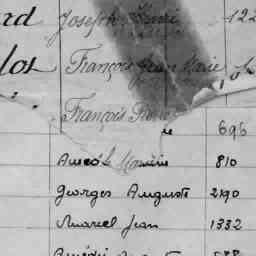 rd Joseph Henri 122
los François Jean Marie
François Pierre
696
810
Georges Auguste 2190
Marcel Jean 1332